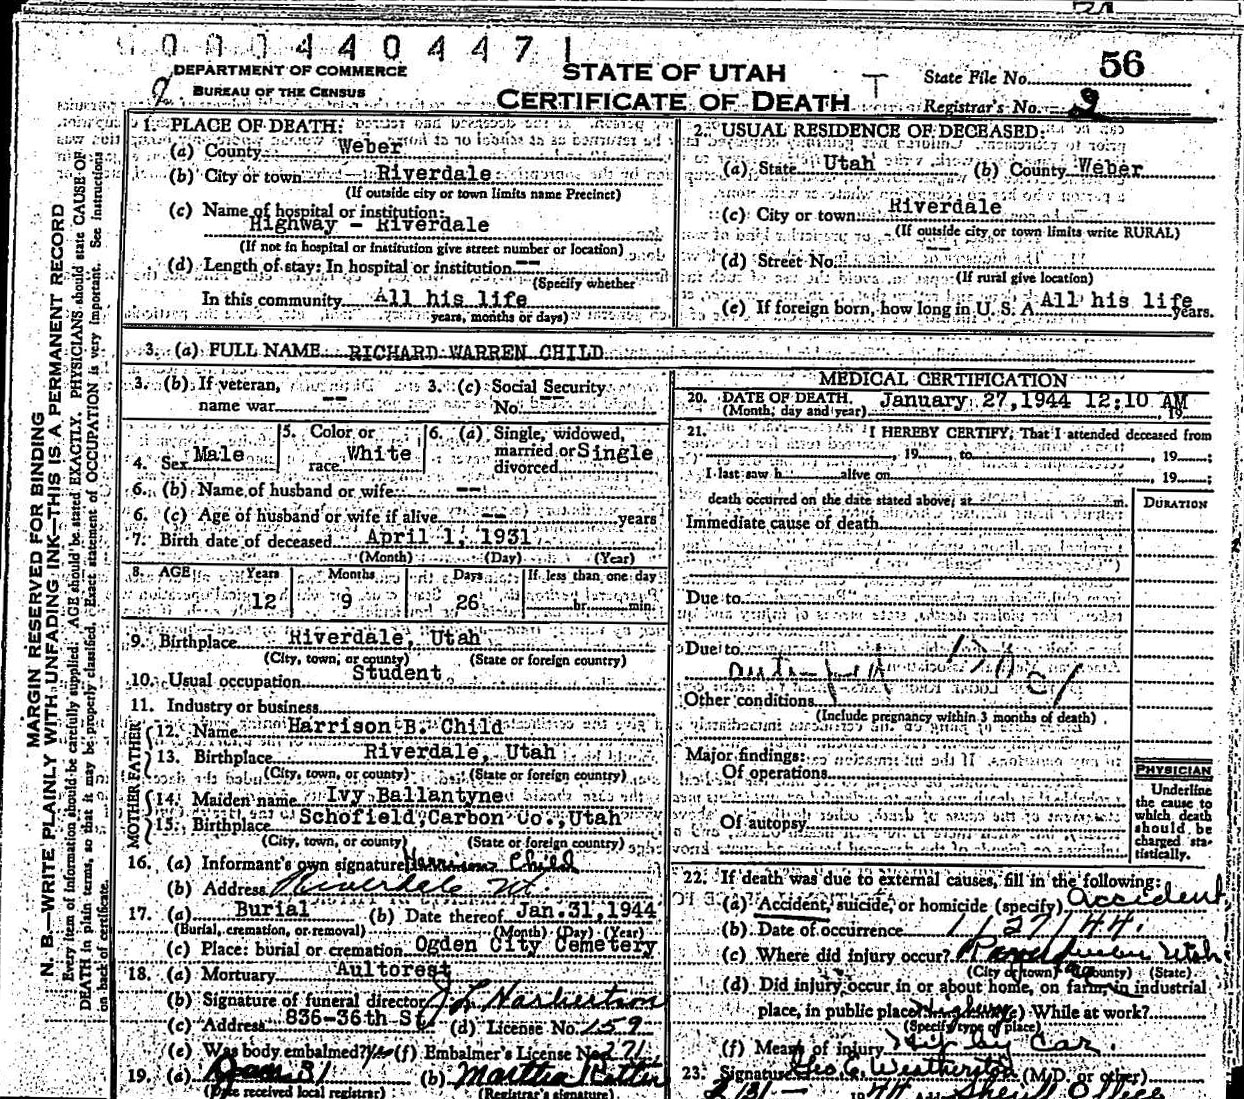 0 0 0 4 4 0 4 4 7 1
DEPARTMENT OF COMMERCE
BUREAU OF THE CENSUS
STATE OF UTAH
CERTIFICATE OF DEATH
State File No. 56
Registrar's No. 9
MARGIN RESERVED FOR BINDING
N. B.—WRITE PLAINLY WITH UNFADING INK—THIS IS A PERMANENT RECORD
Every item of information should be carefully supplied. AGE should be stated EXACTLY. PHYSICIANS should state CAUSE OF
DEATH in plain terms, so that it may be properly classified. Exact statement of OCCUPATION is very important. See instructions
on back of certificate.
1. PLACE OF DEATH:
(a) County Weber
(b) City or town Riverdale
(If outside city or town limits name Precinct)
(c) Name of hospital or institution:
Highway - Riverdale
(If not in hospital or institution give street number or location)
(d) Length of stay: In hospital or institution --
(Specify whether
In this community All his life
years, months or days)
2. USUAL RESIDENCE OF DECEASED:
(a) State Utah (b) County Weber
(c) City or town Riverdale
(If outside city or town limits write RURAL)
(d) Street No. --
(If rural give location)
(e) If foreign born, how long in U. S. A. All his life years.
3. (a) FULL NAME RICHARD WARREN CHILD
3. (b) If veteran, name war -- 3. (c) Social Security No. --
4. Sex Male 5. Color or race White 6. (a) Single, widowed, married or divorced Single
6. (b) Name of husband or wife --
6. (c) Age of husband or wife if alive -- years
7. Birth date of deceased April 1, 1931
(Month) (Day) (Year)
8. AGE Years Months Days If less than one day
12 9 26 hr. min.
9. Birthplace Riverdale, Utah
(City, town, or county) (State or foreign country)
10. Usual occupation Student
11. Industry or business
FATHER
12. Name Harrison B. Child
13. Birthplace Riverdale, Utah
(City, town, or county) (State or foreign country)
MOTHER
14. Maiden name Ivy Ballantyne
15. Birthplace Schofield, Carbon Co., Utah
(City, town, or county) (State or foreign country)
16. (a) Informant's own signature Harrison Child
(b) Address Riverdale Ut.
17. (a) Burial (b) Date thereof Jan. 31, 1944
(Burial, cremation, or removal) (Month) (Day) (Year)
(c) Place: burial or cremation Ogden City Cemetery
18. (a) Mortuary Aultorest
(b) Signature of funeral director J L Harbertson
(c) Address 836-36th St. (d) License No. 159
(e) Was body embalmed? Yes (f) Embalmer's License No. 271
19. (a) Jan 31 (b) Martha Ritter
(Date received local registrar) (Registrar's signature)
MEDICAL CERTIFICATION
20. DATE OF DEATH January 27, 1944 12:10 AM
(Month, day and year) , 19
21. I HEREBY CERTIFY, That I attended deceased from
, 19 , to , 19 ;
I last saw h alive on , 19 ;
death occurred on the date stated above, at m.
DURATION
Immediate cause of death
Due to
Due to
Other conditions
(Include pregnancy within 3 months of death)
Major findings:
Of operations
Of autopsy
PHYSICIAN
Underline
the cause to
which death
should be
charged sta-
tistically.
22. If death was due to external causes, fill in the following:
(a) Accident, suicide, or homicide (specify) Accident
(b) Date of occurrence 1/27/44.
(c) Where did injury occur? Utah
(City or town) (County) (State)
(d) Did injury occur in or about home, on farm, in industrial
place, in public place? Highway While at work?
(Specify type of place)
(f) Means of injury Hit by Car.
23. Signature Geo C. Weatherston (M.D. or other)